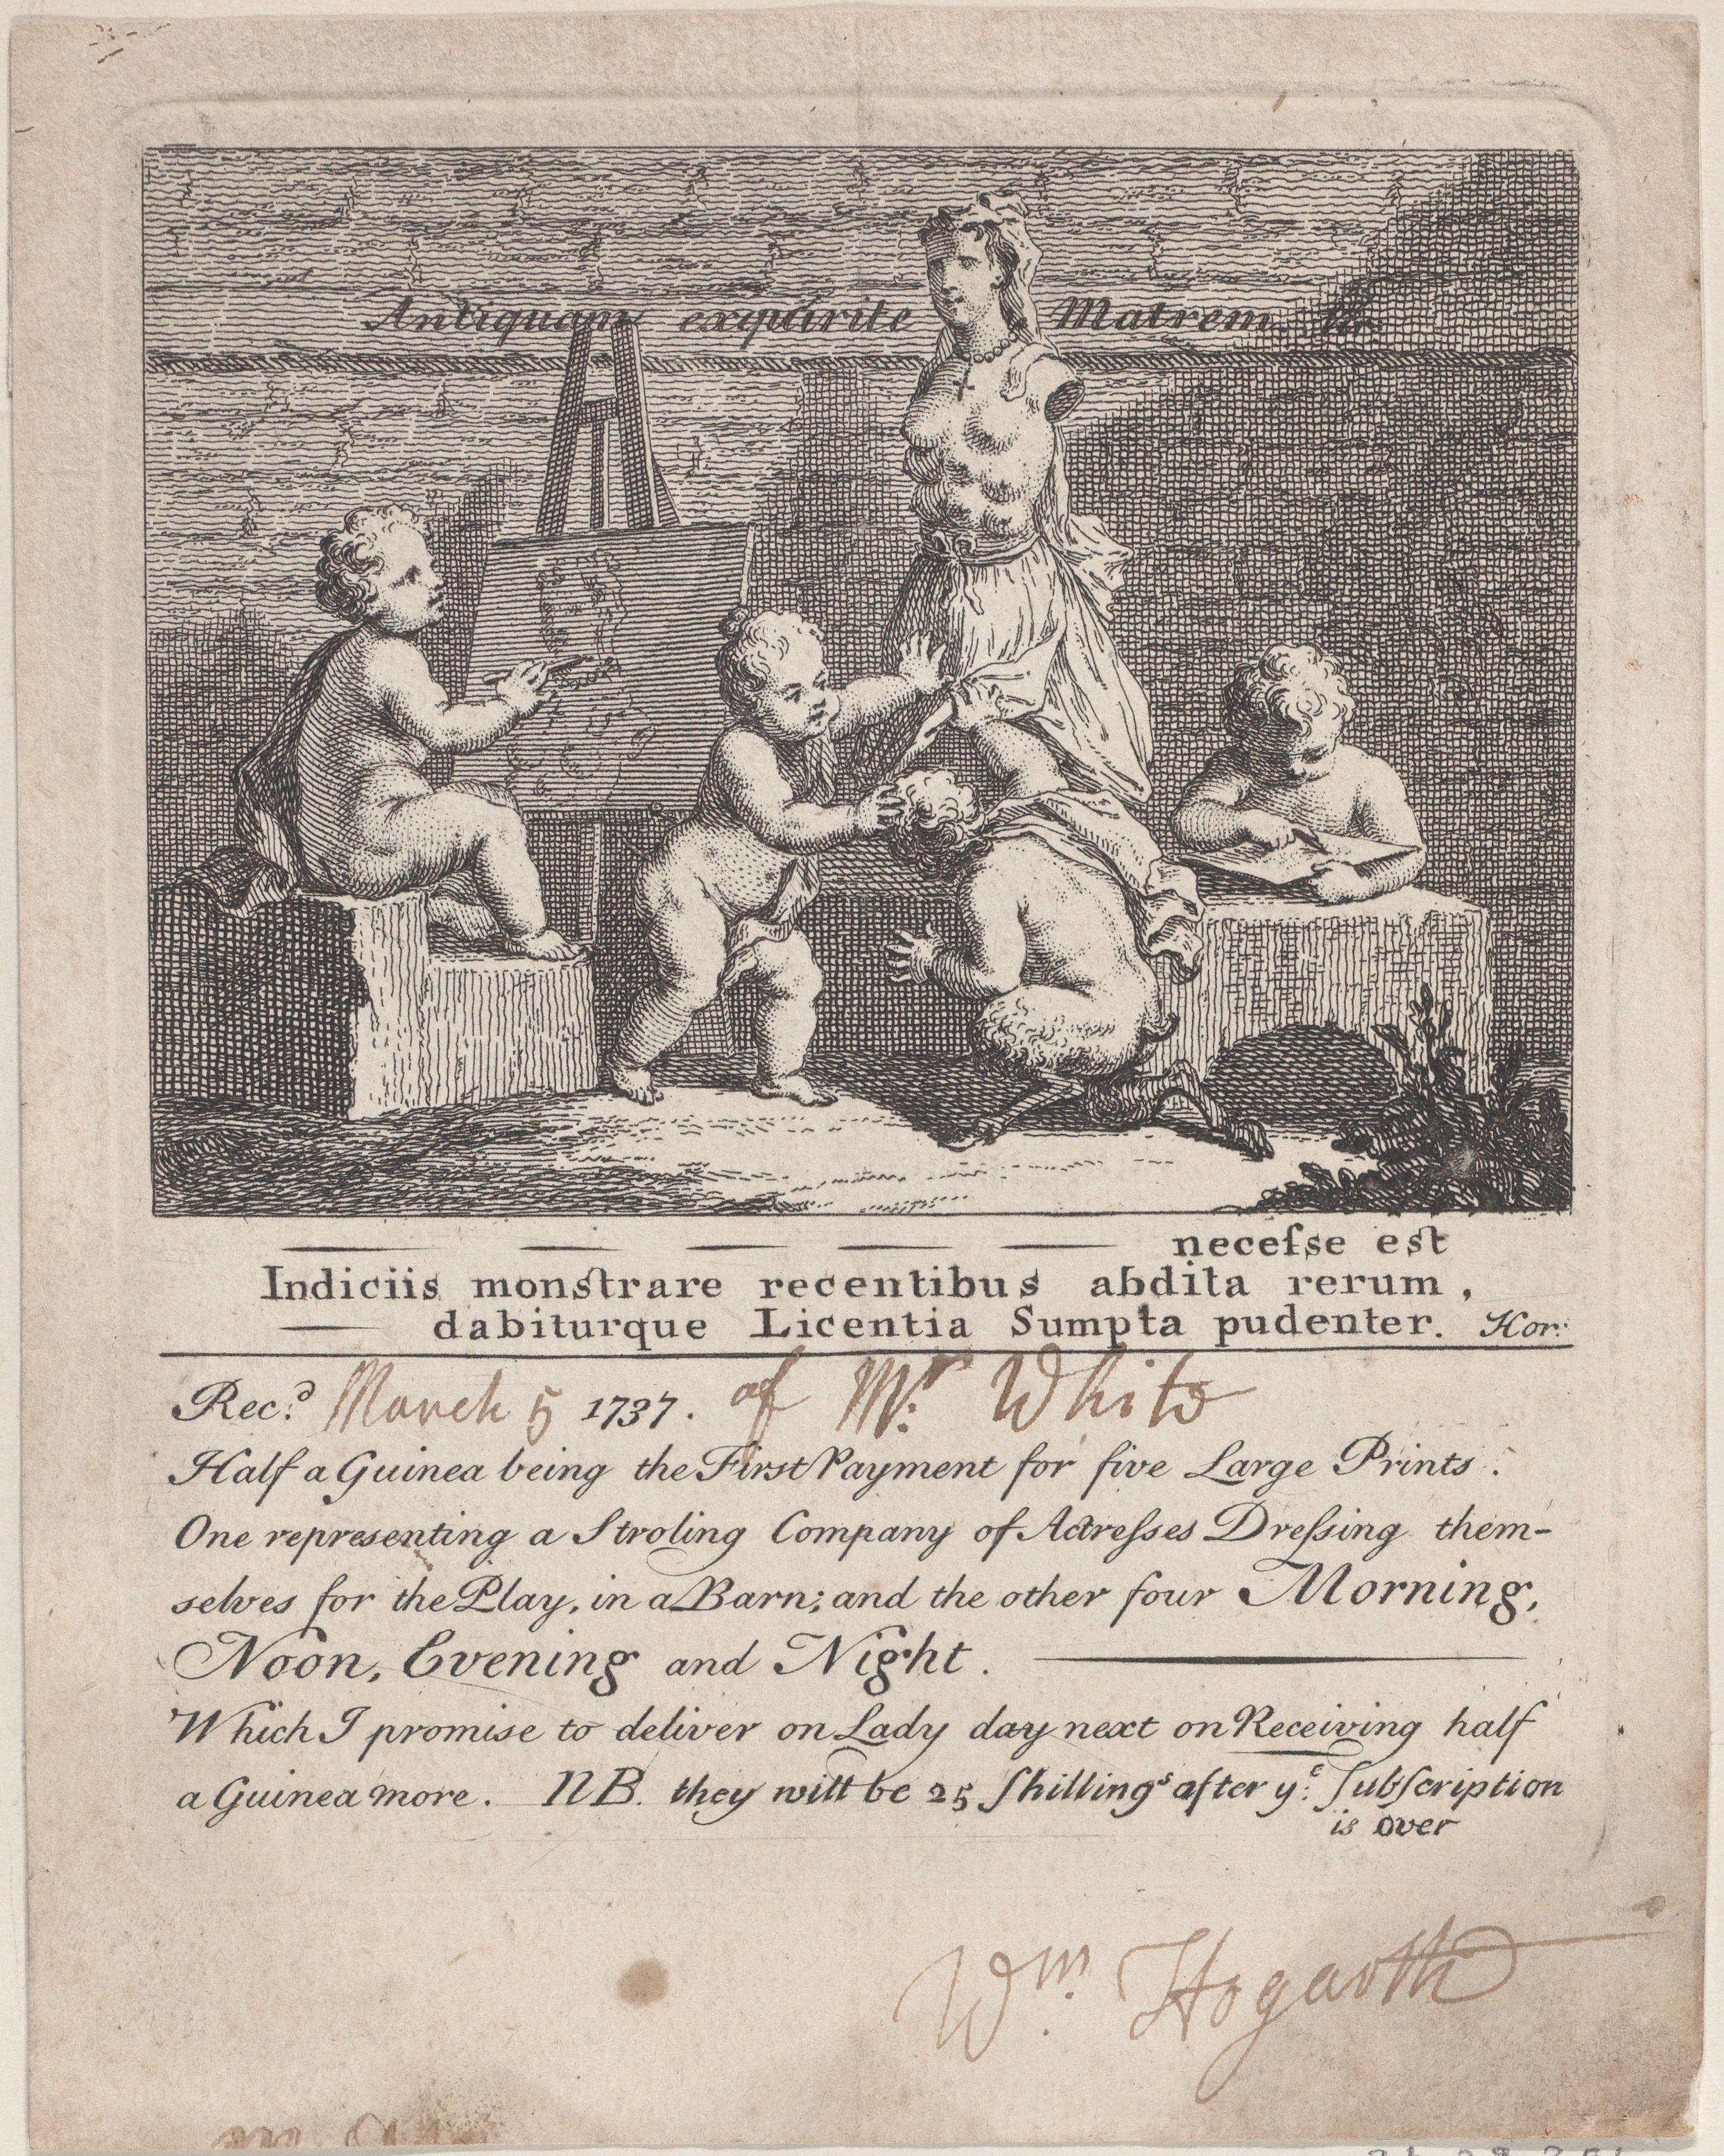 Antiquam exquirite Matrem. Vir.
neceſse est
Indiciis monstrare recentibus abdita rerum,
dabiturque Licentia Sumpta pudenter. Hor:
Rec.d March 5 1737. of Mr. White
Half a Guinea being the First Payment for five Large Prints.
One representing a Stroling Company of Actreſses Dreſsing them-
selves for the Play, in a Barn; and the other four Morning,
Noon, Evening and Night.
Which I promise to deliver on Lady day next on Receiving half
a Guinea more. NB. they will be 25 Shillings after y.e Subſcription
is over
Wm. Hogarth